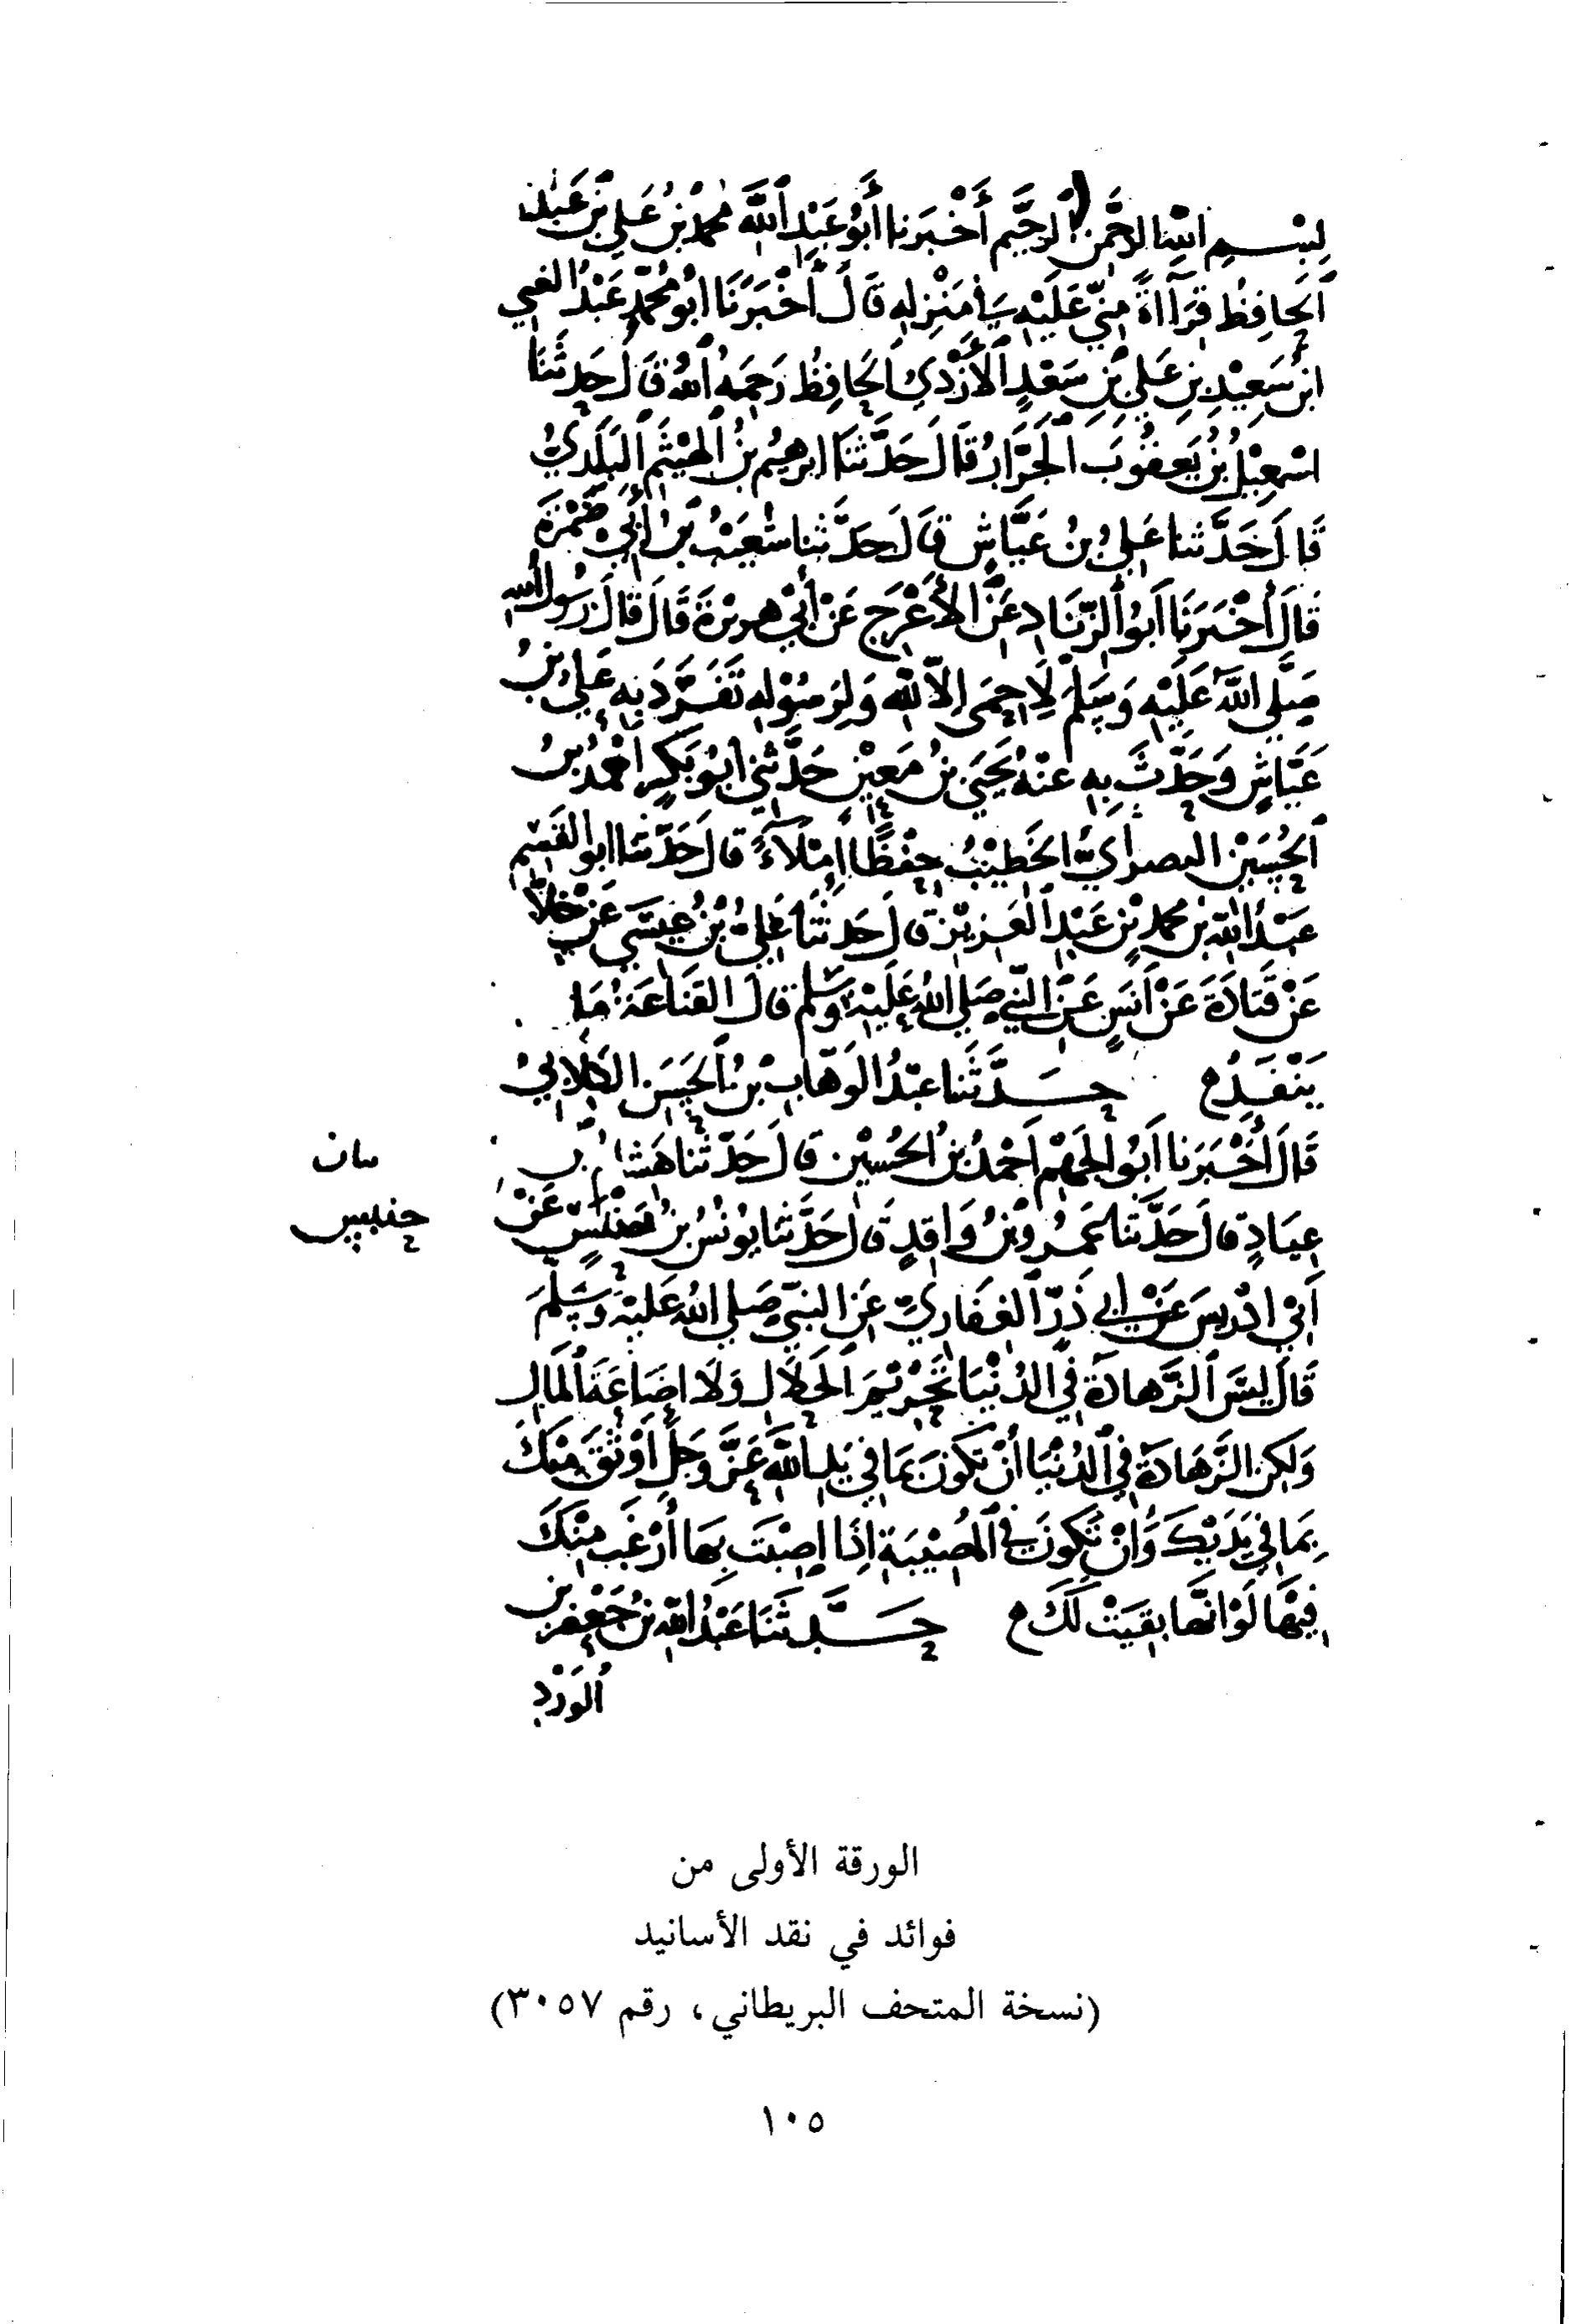 بِسْمِ اللهِ الرحمن الرحيم أَخْبَرنا أَبُو عَبْدِ اللهِ محمد بن عَلي بن عَبْدِ الله
الحَافِظُ قِرَاءةً مِنّي عَلَيْهِ في مَنْزِلِهِ قَالَ أَخْبَرَنَا ابُو مُحَمَّدٍ عَبْدُ الغني
ابنُ سَعِيْدِ بنِ عَلِي بْنِ سَعْدٍ الأَزْدِيُ الحَافِظُ رَحِمَهُ اللهُ قَالَ حَدثنَا
اسْمعِيْلُ بْنُ يَعقُوبَ الجَرَّابُ قَالَ حَدَّثَنَا ابرهيمُ بنُ الهَيْثَمِ البَلَدِيُّ
قَالَ حَدَّثنا عَلِيُّ بنُ عَيَّاشٍ قَالَ حَدَّثنا شُعَيْبُ بنُ أَبي حَمْزَةَ
قَالَ أَخْبَرَنَا أَبُو الزِّنَادِ عَنِ الأَعْرَجِ عَنْ أَبي هريرة قَالَ قَالَ رَسُولُ الله
صَلَّى اللهُ عَلَيْهِ وَسَلمَ لَا حِمَى إِلّا للهِ وَلِرَسُوْلِهِ تَفَرَّدَ بِهِ عَلِيُّ بنُ
عَيَّاشٍ وَحَدَّثَ بِهِ عنْهُ يَحْيَى بنُ مَعِيْنٍ حَدَّثني ابُو بَكرٍ احْمدُ بنُ
الحُسَيْنِ الخَطِيْبُ حِفْظًا إمْلاءً قالَ حَدَّثنا ابو القسم
عَبْدُ اللهِ بن محمد بْنِ عَبْدِ العَزِيْزِ قال حَدثنَا عَلِيُّ بْنُ عِيْسَى عَنْ
عَنْ قَتَادَةَ عَنْ أَنَسٍ عَنِ النّبي صَلى اللهُ عَلَيْهِ وسلم قال القَنَاعَةُ مَا
يَنْفَدُ حَدَّثَنا عَبْدُ الوَهّابِ بْنُ الحَسَنِ الكِلابيُّ
قَالَ أَخْبَرَنا أَبُو الجَهْمِ أَحْمَدُ بنُ الحُسَيْنِ قال حَدَّثنا هِشَام بن
عِبَادٍ قال حَدَّثَنَا عَمْرُو بْنُ وَاقِدٍ قال حَدَّثنا يُونُسُ بنُ عَنْ
أَبي ادْرِيسَ عَنْ ابي ذَرّ الغفَاريّ عَنِ النبيّ صَلى اللهُ عَلَيْهِ وَسَلَّمَ
قَالَ لَيْسَ الزَّهادَةُ فِي الدُنْيَا تَحْرِيْمَ الحَلَالِ وَلَا إضَاعَةَ المَالِ
وَلكِن الزَّهَادَةُ فِي الدُنْيَا أَنْ تَكُونَ بمَا في يَدِ اللهِ عَزَّ وَجَلَّ أَوْثَقَ مِنْكَ
بِمَا فِي يَدَيْكَ وَأَنْ تَكُونَ في المُصِيْبَةِ إِذَا أُصِبْتَ بِهَا أَرْغَبَ مِنْكَ
فِيْهَا لَوْ أنَّها بَقِيَتْ لَكَ حَدَّثَنَا عَبْدُ اللهِ بْنُ جَعْفَرِ بنِ
الوَرْد
بيان
حلبس
الورقة الأولى من
فوائد في نقد الأسانيد
(نسخة المتحف البريطاني، رقم ٣٠٥٧)
١٠٥